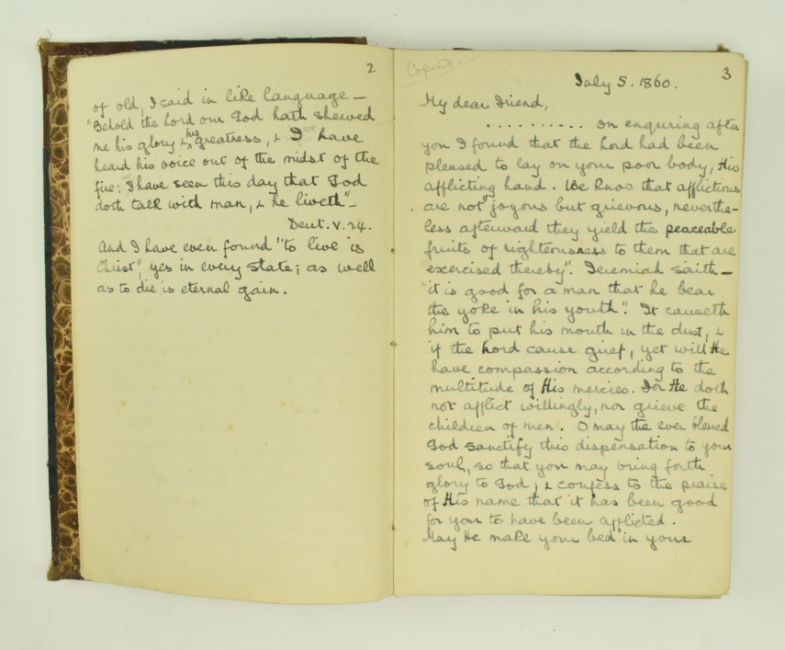 2
of old, I said in like language —
"Behold the Lord our God hath shewed
me his glory & his greatness, & I have
heard his voice out of the midst of the
fire: I have seen this day that God
doth talk with man, & he liveth" —
Deut. V. 24.
And I have even found "to live is
Christ", yes in every state; as well
as to die is eternal gain.
Copied.
3
July 5. 1860.
My dear Friend,
. . . . . . . . . . . on enquring after
you I found that the Lord had been
pleased to lay on your poor body, His
afflicting hand. We know that afflictions
are not "joyous but grievous, neverthe-
less afterward they yield the peaceable
fruits of righteousness to them that are
exercised thereby". Jeremiah saith —
"it is good for a man that he bear
the yoke in his youth". It causeth
him to put his mouth in the dust, &
if the Lord cause grief, yet will He
have compassion according to the
multitude of His mercies. For He doth
not afflict willingly, nor grieve the
children of men. O may the ever blessed
God sanctify this dispensation to your
soul, so that you may bring forth
glory to God, & confess to the praise
of His name that it has been good
for you to have been afflicted.
May He make your bed in your